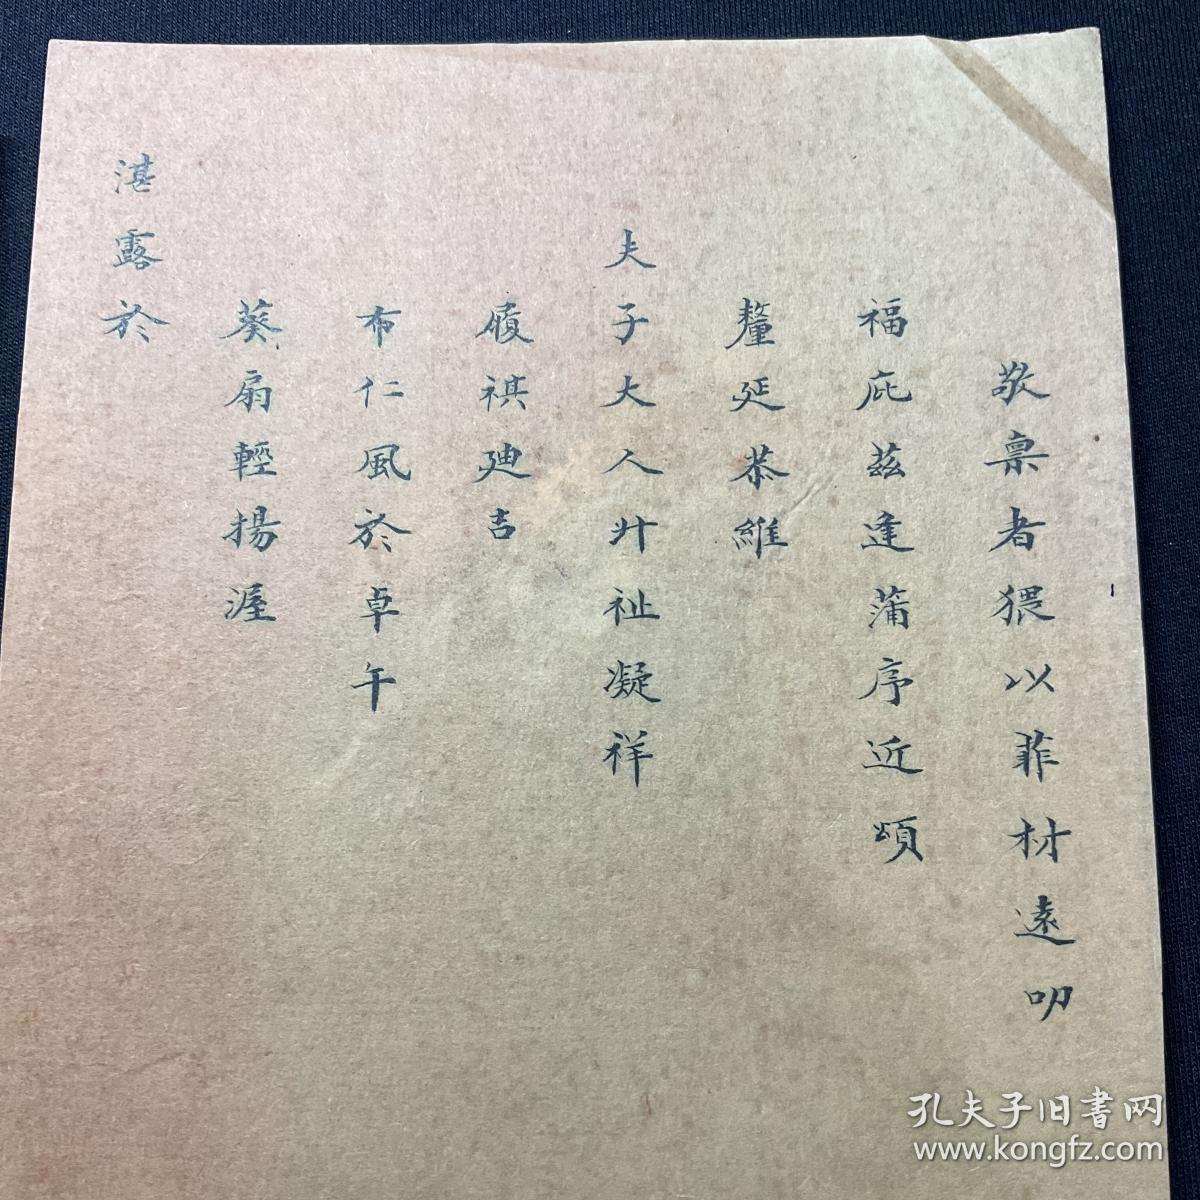 敬禀者猥以菲材遠叨
福庇茲逢蒲序近頌
釐延恭維
夫子大人升祉凝祥
履祺迪吉
布仁風於卓午
葵扇輕揚渥
湛露於
孔夫子旧書网
www.kongfz.com